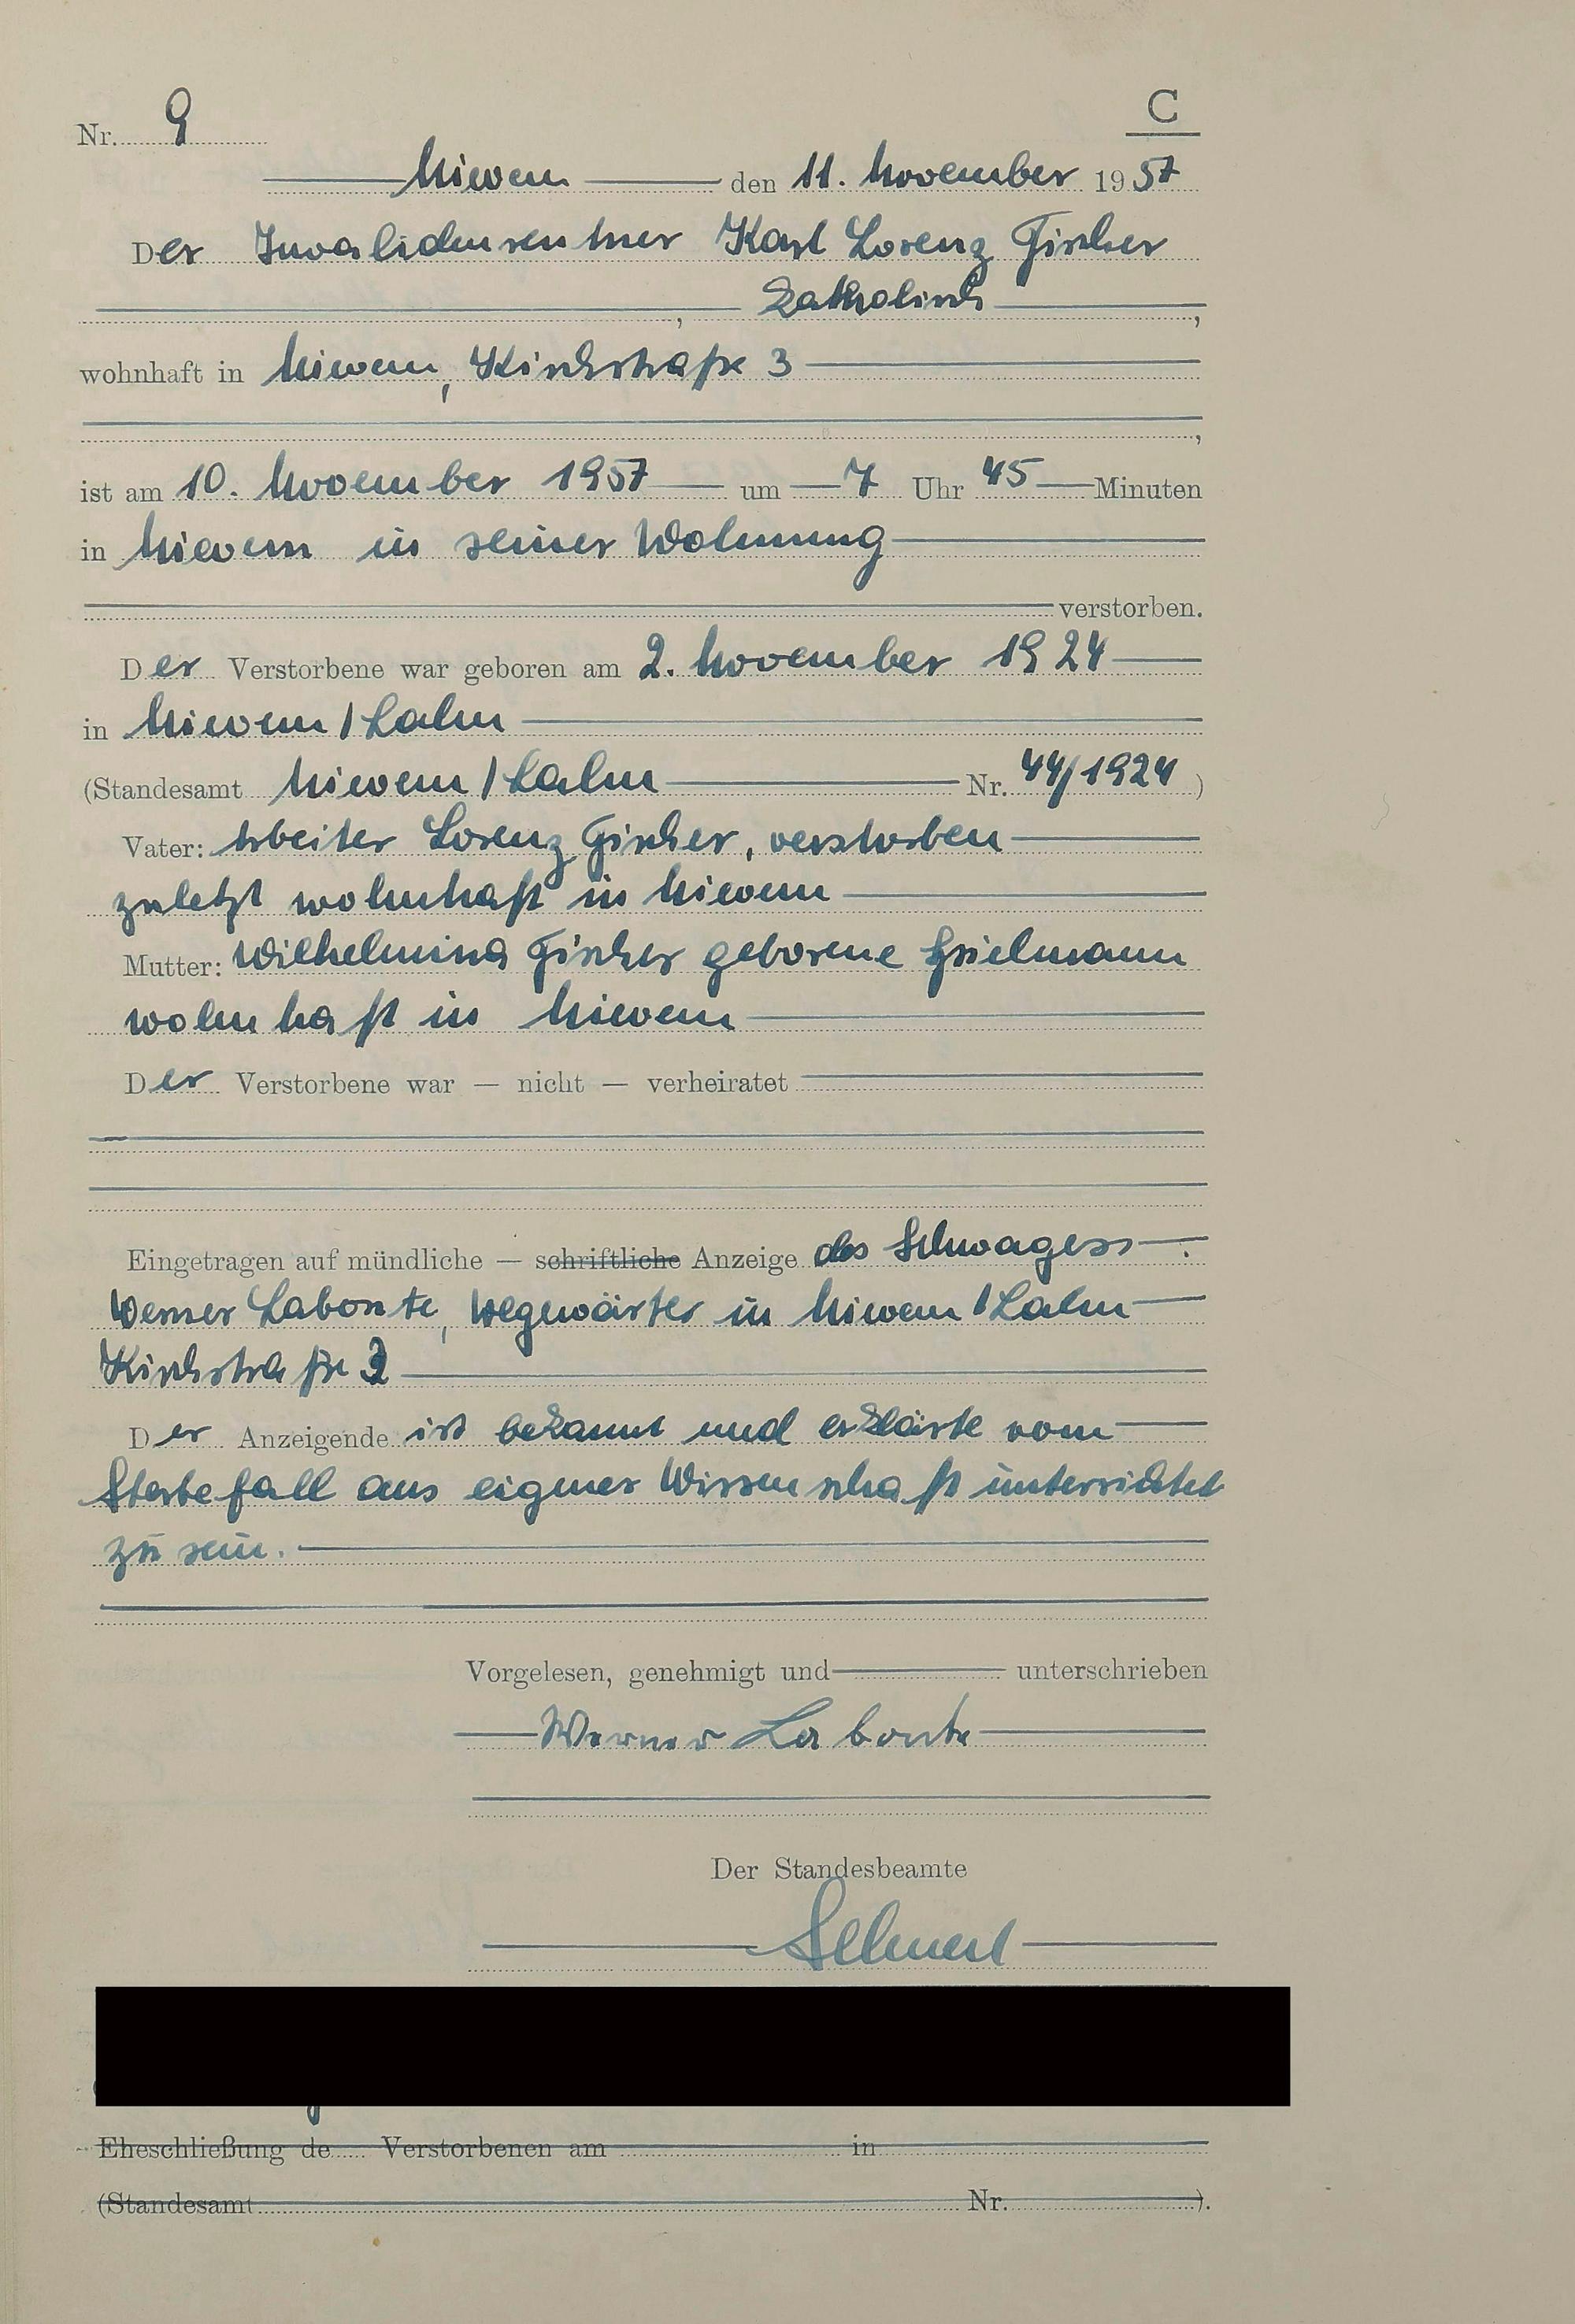 Nr. 9
C
Nievern den 11. November 1957
Der Invalidenrentner Karl Lorenz Fischer
, katholisch,
wohnhaft in Nievern, Kirchstraße 3
,
ist am 10. November 1957 um 7 Uhr 45 Minuten
in Nievern in seiner Wohnung
verstorben.
Der Verstorbene war geboren am 2. November 1924
in Nievern / Lahn
(Standesamt Nievern / Lahn Nr. 44/1924)
Vater: Arbeiter Lorenz Fischer, verstorben
zuletzt wohnhaft in Nievern
Mutter: Wilhelmina Fischer geborene Spielmann
wohnhaft in Nievern
Der Verstorbene war — nicht — verheiratet
Eingetragen auf mündliche — schriftliche Anzeige des Schwagers
Werner Labonte, Wegewärter in Nievern / Lahn
Kirchstraße 3
Der Anzeigende ist bekannt und erklärte vom
Sterbefall aus eigner Wissenschaft unterrichtet
zu sein.
Vorgelesen, genehmigt und unterschrieben
Werner Labonte
Der Standesbeamte
Eheschließung de Verstorbenen am in
(Standesamt Nr. ).